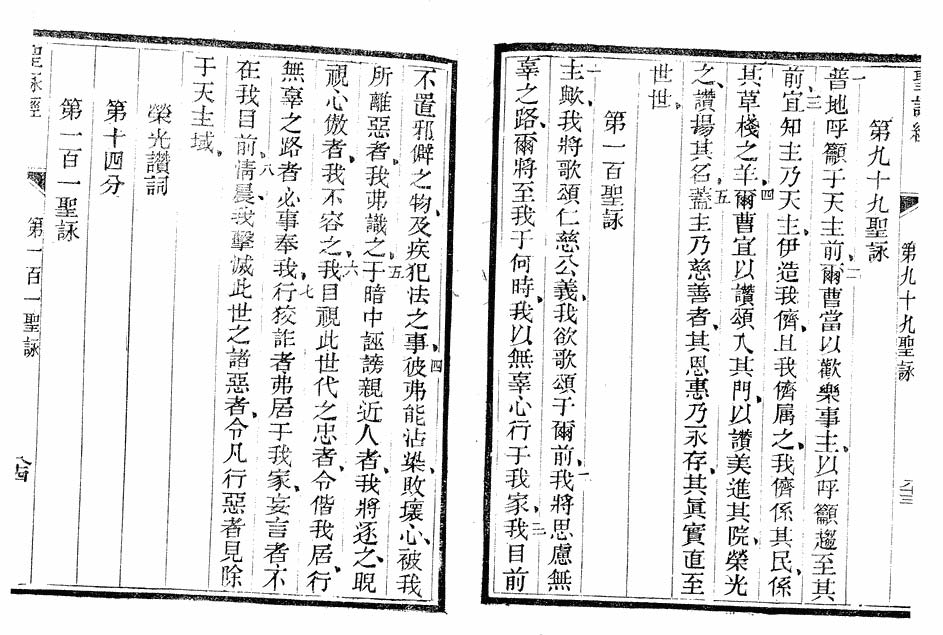 聖詠經
第九十九聖詠
第九十九聖詠
一普地呼籲于天主前、爾曹當以歡樂事主、二以呼籲趨至其
前、三宜知主乃天主、伊造我儕、且我儕属之、我儕係其民、係
其草棧之羊、四爾曹宜以讚頌入其門、以讚美進其院、榮光
之、讚揚其名、五蓋主乃慈善者、其恩惠乃永存、其眞實直至
世世。
第一百聖詠
一主歟、我將歌頌仁慈公義、我欲歌頌于爾前、二我將思慮無
辜之路、爾將至我于何時、我以無辜心行于我家、三我目前
不置邪僻之物、及疾犯法之事、彼弗能沾染、四敗壞心、被我
所離、惡者、我弗識之、五于暗中誣謗親近人者、我將逐之、睨
視心傲者、我不容之、六我目視此世代之忠者、令偕我居、行
無辜之路者、必事奉我、七行狡詐者、弗居于我家、妄言者、不
在我目前、八淸晨、我擊滅此世之諸惡者、令凡行惡者見除
于天主域、
榮光讚詞
第十四分
第一百一聖詠
聖詠經
第一百一聖詠